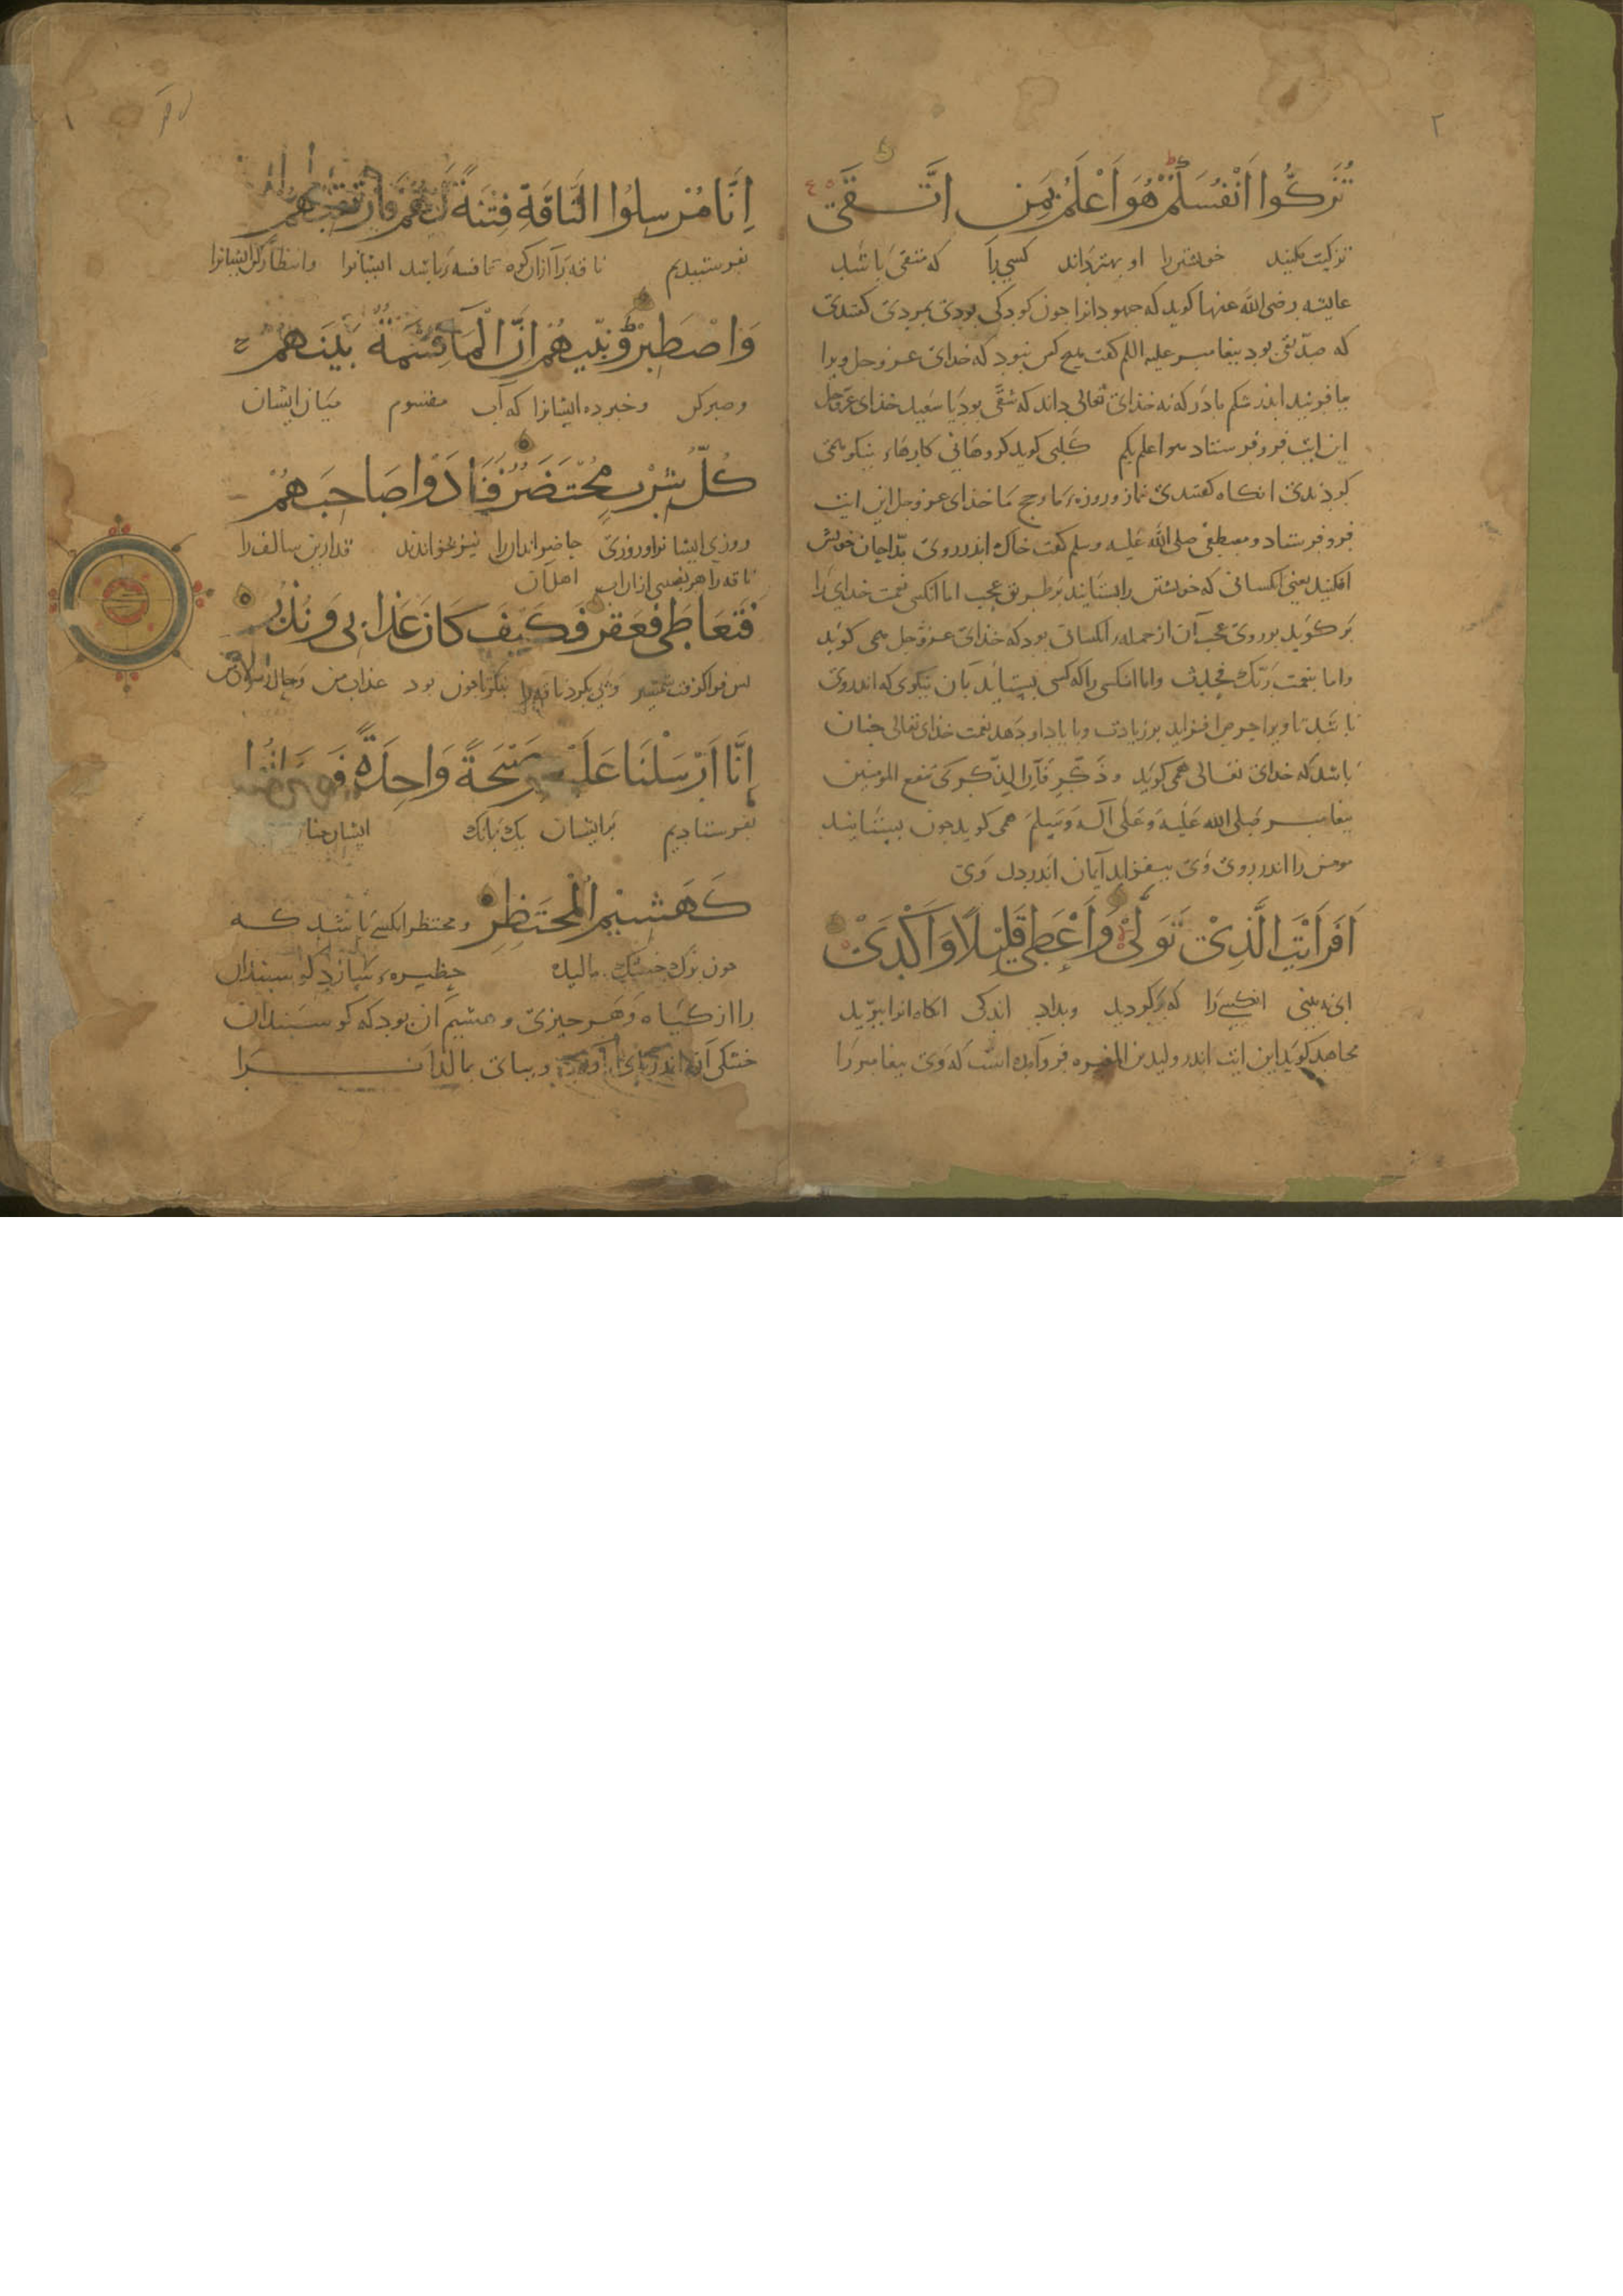 ٢
تُزَكُّوا اَنْفُسَكُمْ هُوَ اَعْلَمُ بِمَنِ اتَّقَىٰ
تزکیت مکنید خویشتن را او بهتر داند کسی را که متقی باشد
عایشه رضی الله عنها کوید که جهودانرا جون کودکی بودی بمردی کفتندی
که صدّیقی بود بیغامبر علیه اللم کفت هیچ کس نبود که خدای عزوجل ویرا
بیافرنید اندر شکم مادر که نه خدای تعالی داند که شقی بود یا سعید خدای عزوجل
این ایت فرو فرستاد هو اعلم بکم کلبی کوید کروهانی کارهاء نیکو همی
کردندی انکاه کفتندی نماز و روزهٔ ما و حج ما خدای عزوجل این ایت
فرو فرستاد و مصطفی صلی الله علیه وسلم کفت خاک اندر روی مدّاحان خویش
افکنید یعنی انکسانی که خویشتن را بستایند بر طریق عجب اما انکس نعمت خدای را
بر کوید بر روی عجب آن از جمله انکسان بود که خدای عزوجل همی کوید
واما بنعمت ربّک فحدث واما انکسی را که کسی بستاید بان نیکوی که اندر وی
باشد تا ویرا حرص افزاید بر زیادت و با یاد او دهد نعمت خدای تعالی جنان
باشد که خدای تعالی همی کوید وذکّر فانّ الذکری تنفع المومنین
بیغامبر صلی الله علیه وعلی آله وسلم همی کوید جون بستایند
مومن را اندر روی وی بیفزاید ایمان اندر دل وی
اَفَرَاَيْتَ الَّذِىْ تَوَلّٰى وَاَعْطٰى قَلِيْلًا وَاَكْدٰىْ
ای نه بینی انکسی را که برکردید وبداد اندکی انکاه انرا ببرّید
مجاهد کوید این ایت اندر ولید بن المغیره فرو آمده است که وی بیغامبر را
اِنَّا مُرْسِلُوا النَّاقَةِ فِتْنَةً لَّهُمْ فَارْتَقِبْهُمْ
بفرستیدیم ناقه را از ان کوه تا فتنه باشد ایشانرا وانتظار کن ایشانرا
وَاصْطَبِرْ وَنَبِّئْهُمْ اَنَّ الْمَآءَ قِسْمَةٌ بَيْنَهُمْ
وصبر کن وخبر ده ایشانرا که آب مقسوم میان ایشان
كُلُّ شِرْبٍ مُّحْتَضَرٌ فَنَادَوْا صَاحِبَهُمْ
روزی ایشانرا وروزی حاضر اندان را بخواندند قدار بن سالف را
ناقه را هر نصیبی از ان اب اهل آن
فَتَعَاطٰى فَعَقَرَ فَكَيْفَ كَانَ عَذَابِى وَنُذُرِ
بس فرا کرفت شمشیر وبی بکرد ناقه را بنکر تا جون بود عذاب من وحال رسولان من
اِنَّا اَرْسَلْنَا عَلَيْهِمْ صَيْحَةً وَاحِدَةً فَكَانُوا
بفرستادیم بر ایشان یک بانک ایشان جنان
كَهَشِيْمِ الْمُحْتَظِرِ ومحتظر انکسی باشد که
جون برک خشک مالیده حظیره سازد کوسبندان
را از کیاه وهر جیزی وهشیم آن بود که کوسبندان
خشکی آن اندر بای آورند وببای بمالند آنرا